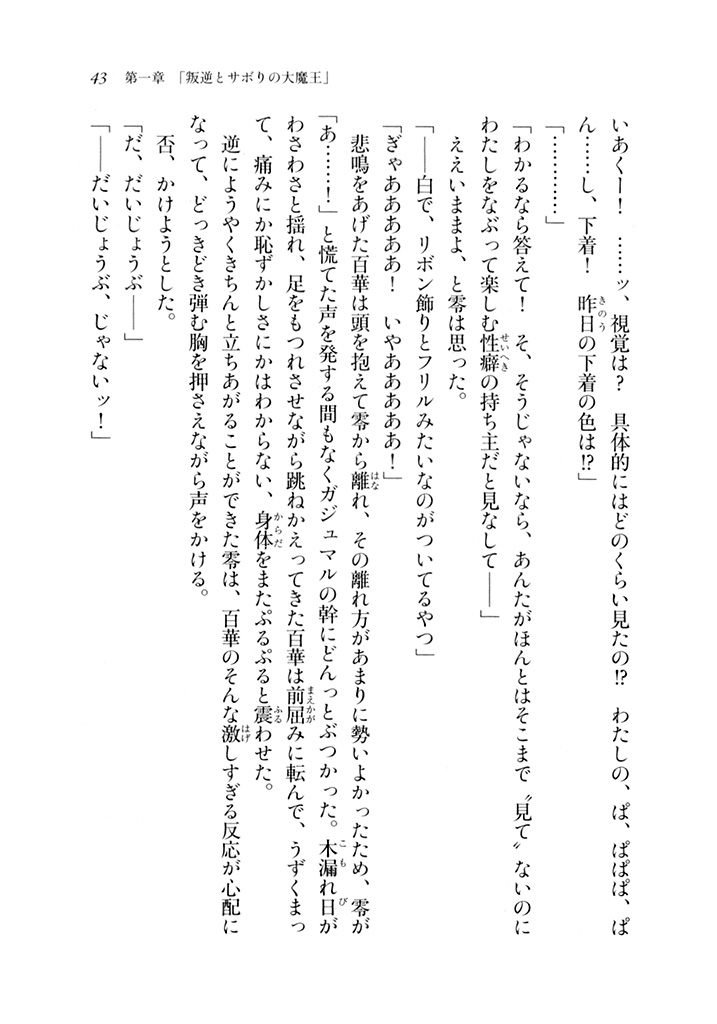 43　第一章　「叛逆とサボりの大魔王」
いあくー！　……ッ、視覚は？　具体的にはどのくらい見たの!?　わたしの、ぱ、ぱぱぱ、ぱ
ん……し、下着！　昨日の下着の色は!?」
「…………」
「わかるなら答えて！　そ、そうじゃないなら、あんたがほんとはそこまで〝見て〟ないのに
わたしをなぶって楽しむ性癖の持ち主だと見なして――」
ええいままよ、と零は思った。
「――白で、リボン飾りとフリルみたいなのがついてるやつ」
「ぎゃあああああ！　いやあああああ！」
悲鳴をあげた百華は頭を抱えて零から離れ、その離れ方があまりに勢いよかったため、零が
「あ……！」と慌てた声を発する間もなくガジュマルの幹にどんっとぶつかった。木漏れ日が
わさわさと揺れ、足をもつれさせながら跳ねかえってきた百華は前屈みに転んで、うずくまっ
て、痛みにか恥ずかしさにかはわからない、身体をまたぷるぷると震わせた。
逆にようやくきちんと立ちあがることができた零は、百華のそんな激しすぎる反応が心配に
なって、どっきどき弾む胸を押さえながら声をかける。
否、かけようとした。
「だ、だいじょうぶ――」
「――だいじょうぶ、じゃないッ！」